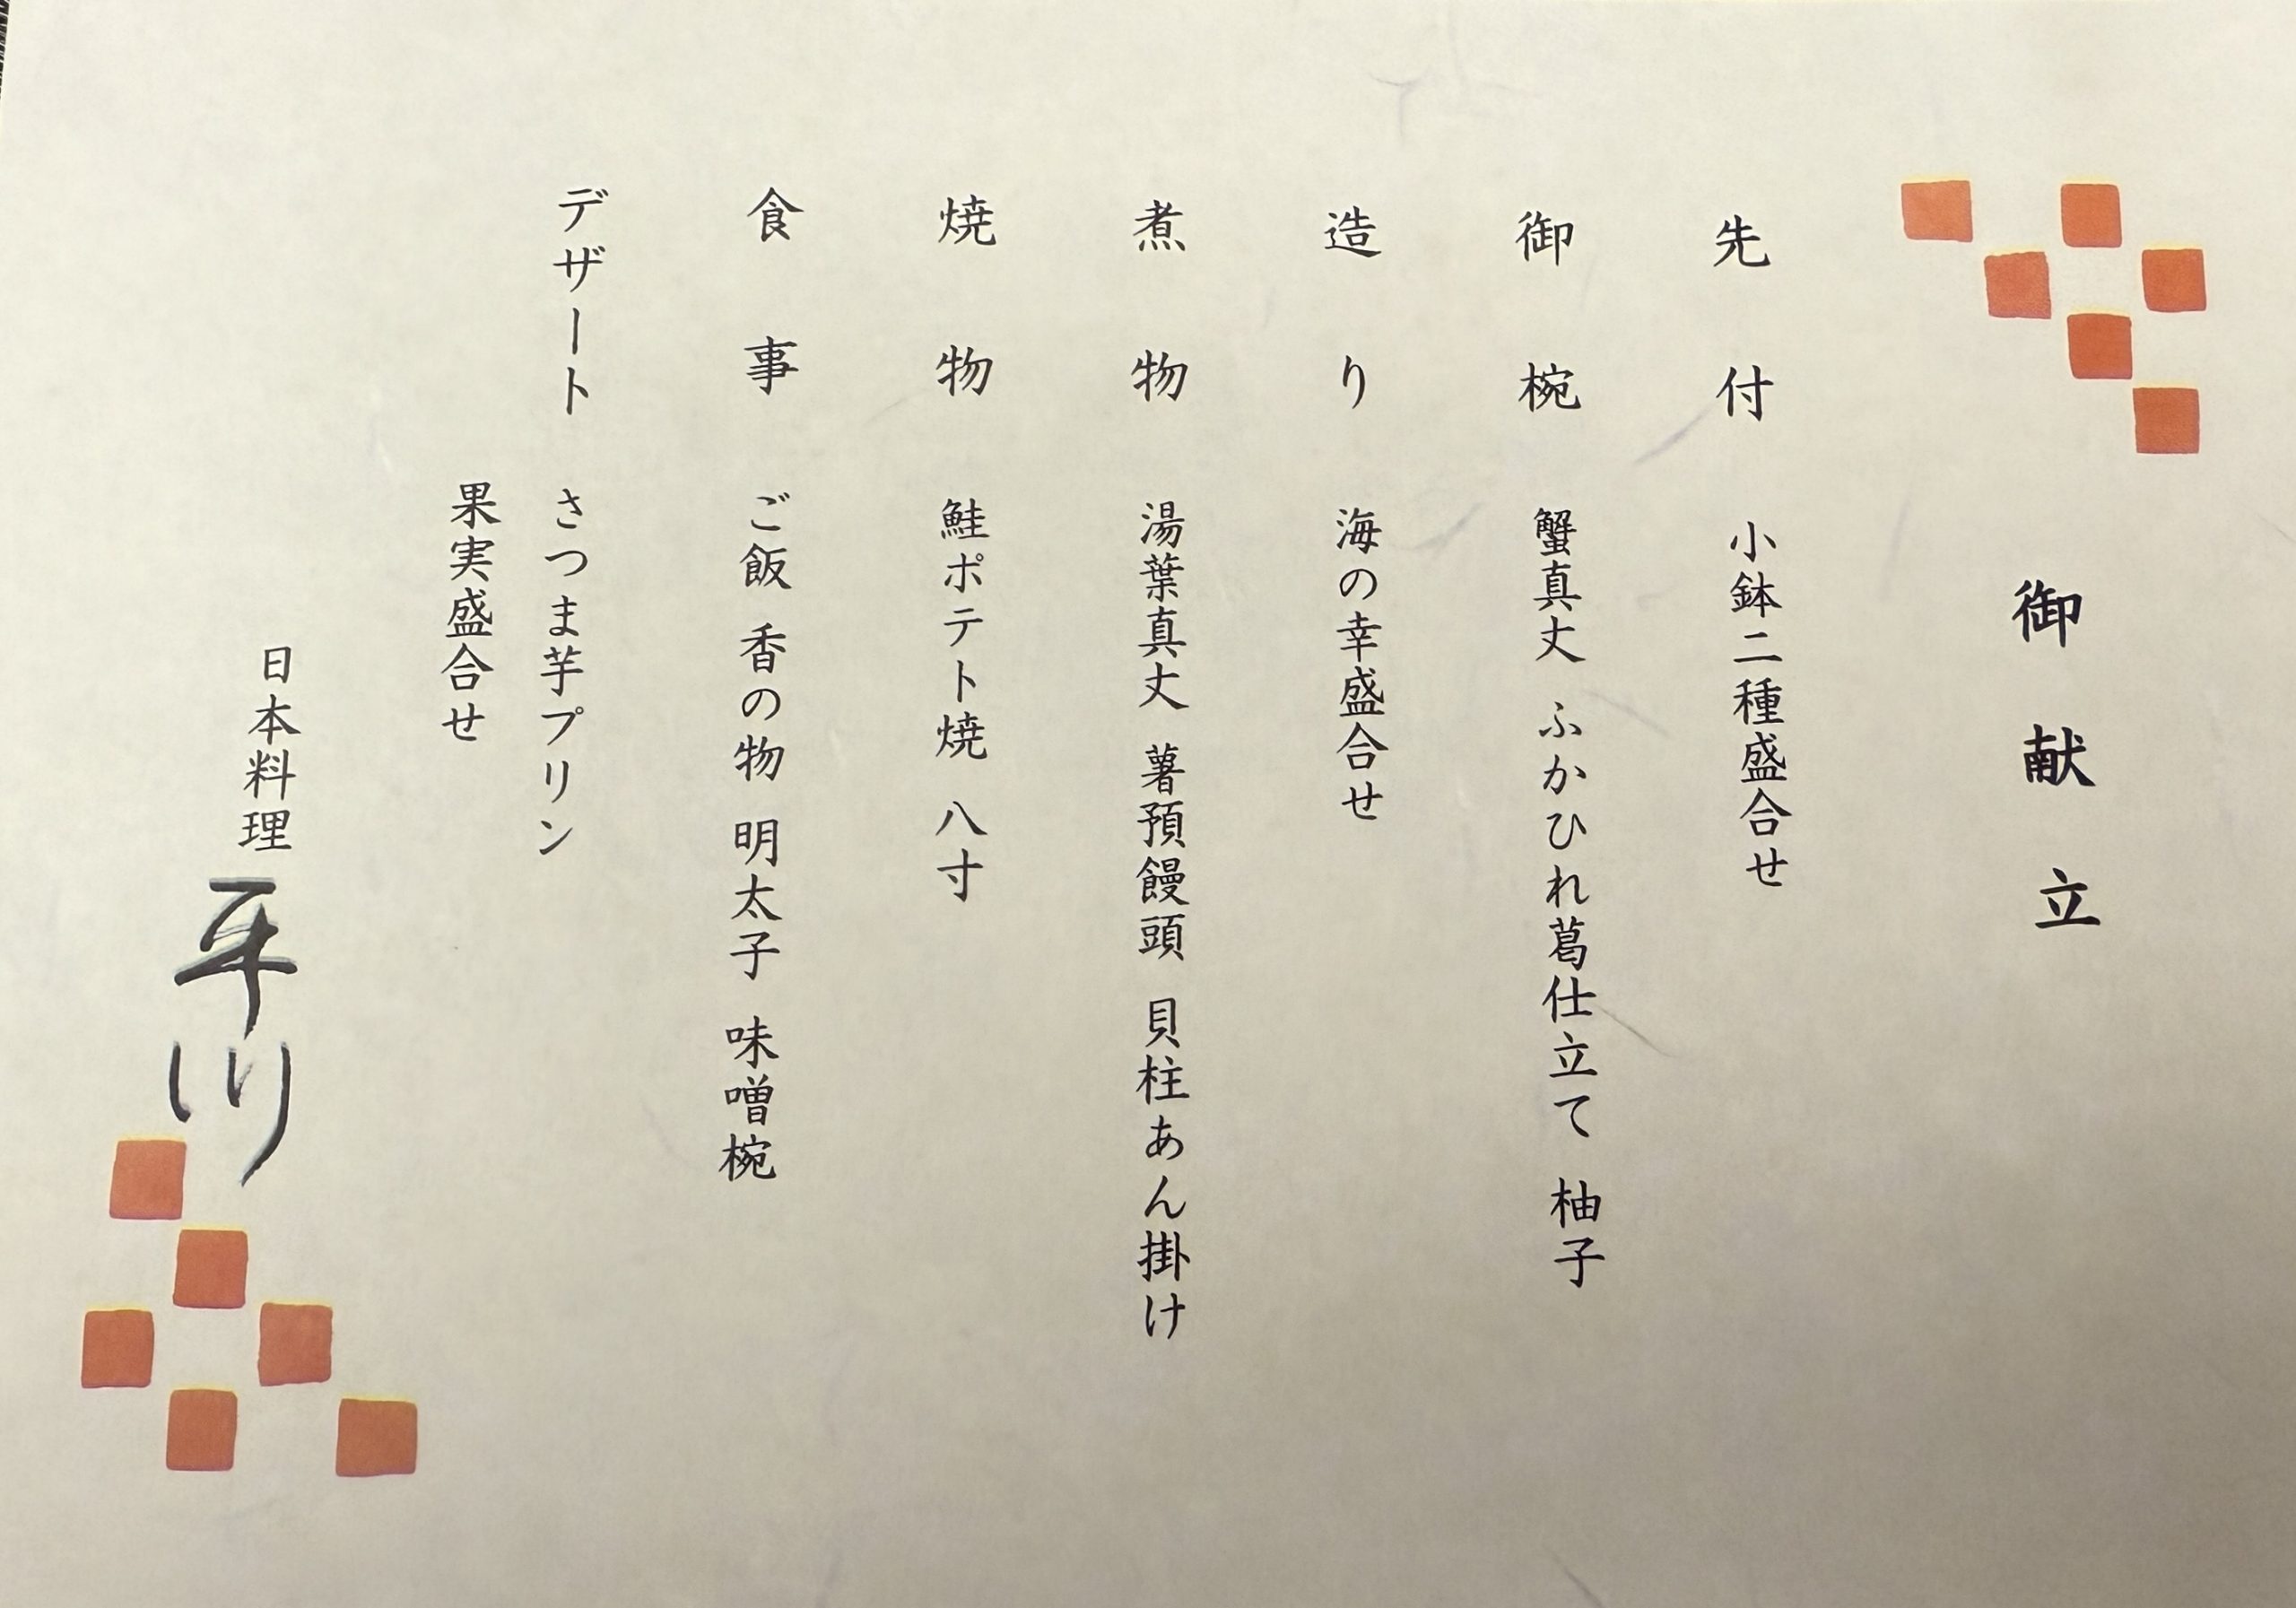 御献立
先付 小鉢二種盛合せ
御椀 蟹真丈 ふかひれ葛仕立て 柚子
造り 海の幸盛合せ
煮物 湯葉真丈 薯預饅頭 貝柱あん掛け
焼物 鮭ポテト焼 八寸
食事 ご飯 香の物 明太子 味噌椀
デザート さつま芋プリン
果実盛合せ
日本料理 平川